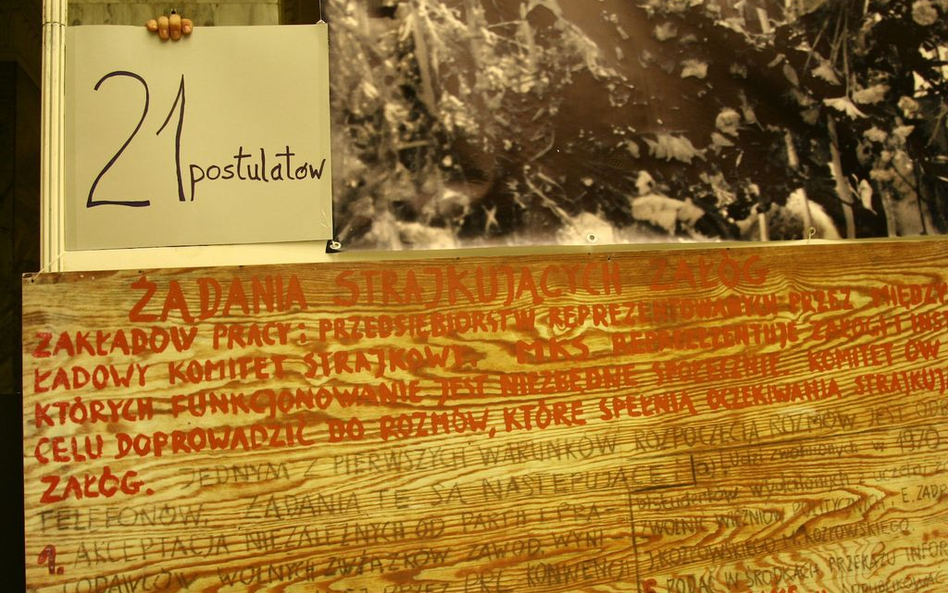 21
postulatów
ŻĄDANIA STRAJKUJĄCYCH ZAŁÓG
ZAKŁADÓW PRACY I PRZEDSIĘBIORSTW REPREZENTOWANYCH PRZEZ MIĘDZY
ŁADOWY KOMITET STRAJKOWY. MKS REPREZENTUJE ZAŁOGI I INS
KTÓRYCH FUNKCJONOWANIE JEST NIEZBĘDNE SPOŁECZNIE. KOMITET ÓW
CELU DOPROWADZIĆ DO ROZMÓW, KTÓRE SPEŁNIĄ OCZEKIWANIA STRAJKUJ
ZAŁÓG. JEDNYM Z PIERWSZYCH WARUNKÓW ROZPOCZĘCIA ROZMÓW JEST OD
TELEFONÓW. ŻĄDANIA TE SĄ NASTĘPUJĄCE:
1. AKCEPTACJA NIEZALEŻNYCH OD PARTII I PRA-
ODAWCÓW WOLNYCH ZWIĄZKÓW ZAWOD. WYNI-
PRL KONWENCJI
a) Ludzi zwolnionych w 1970
studentów wydalonych z uczelni z
ZWOLNIĆ WIĘŹNIÓW POLITYCZNYCH, E. ZAD
J. KOZŁOWSKIEGO, M. KOZŁOWSKIEGO.
PODAĆ W ŚRODKACH PRZEKAZU INFOR